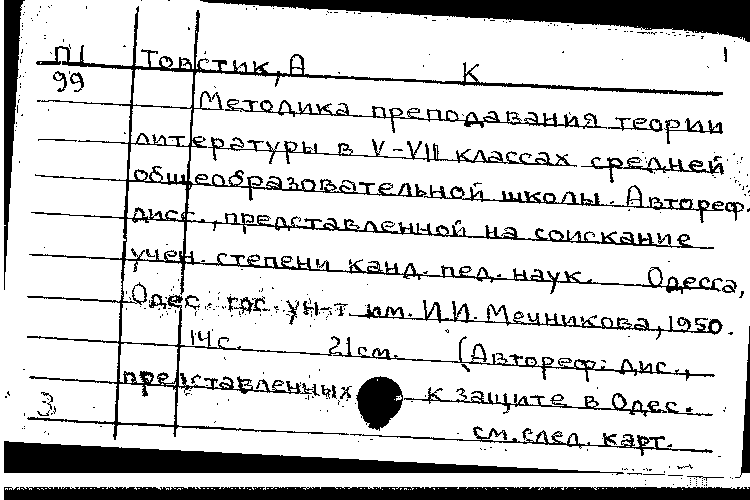 П1 Товстик, А К 1
99
Методика преподавания теории
литературы в V-VII классах средней
общеобразовательной школы. Автореф.
дисс., представленной на соискание
учен. степени канд. пед. наук. Одесса,
Одес. гос. ун-т им. И.И. Мечникова, 1950.
14с. 21см. (Автореф. дис.,
представленных к защите в Одес.
3 см. след. карт.